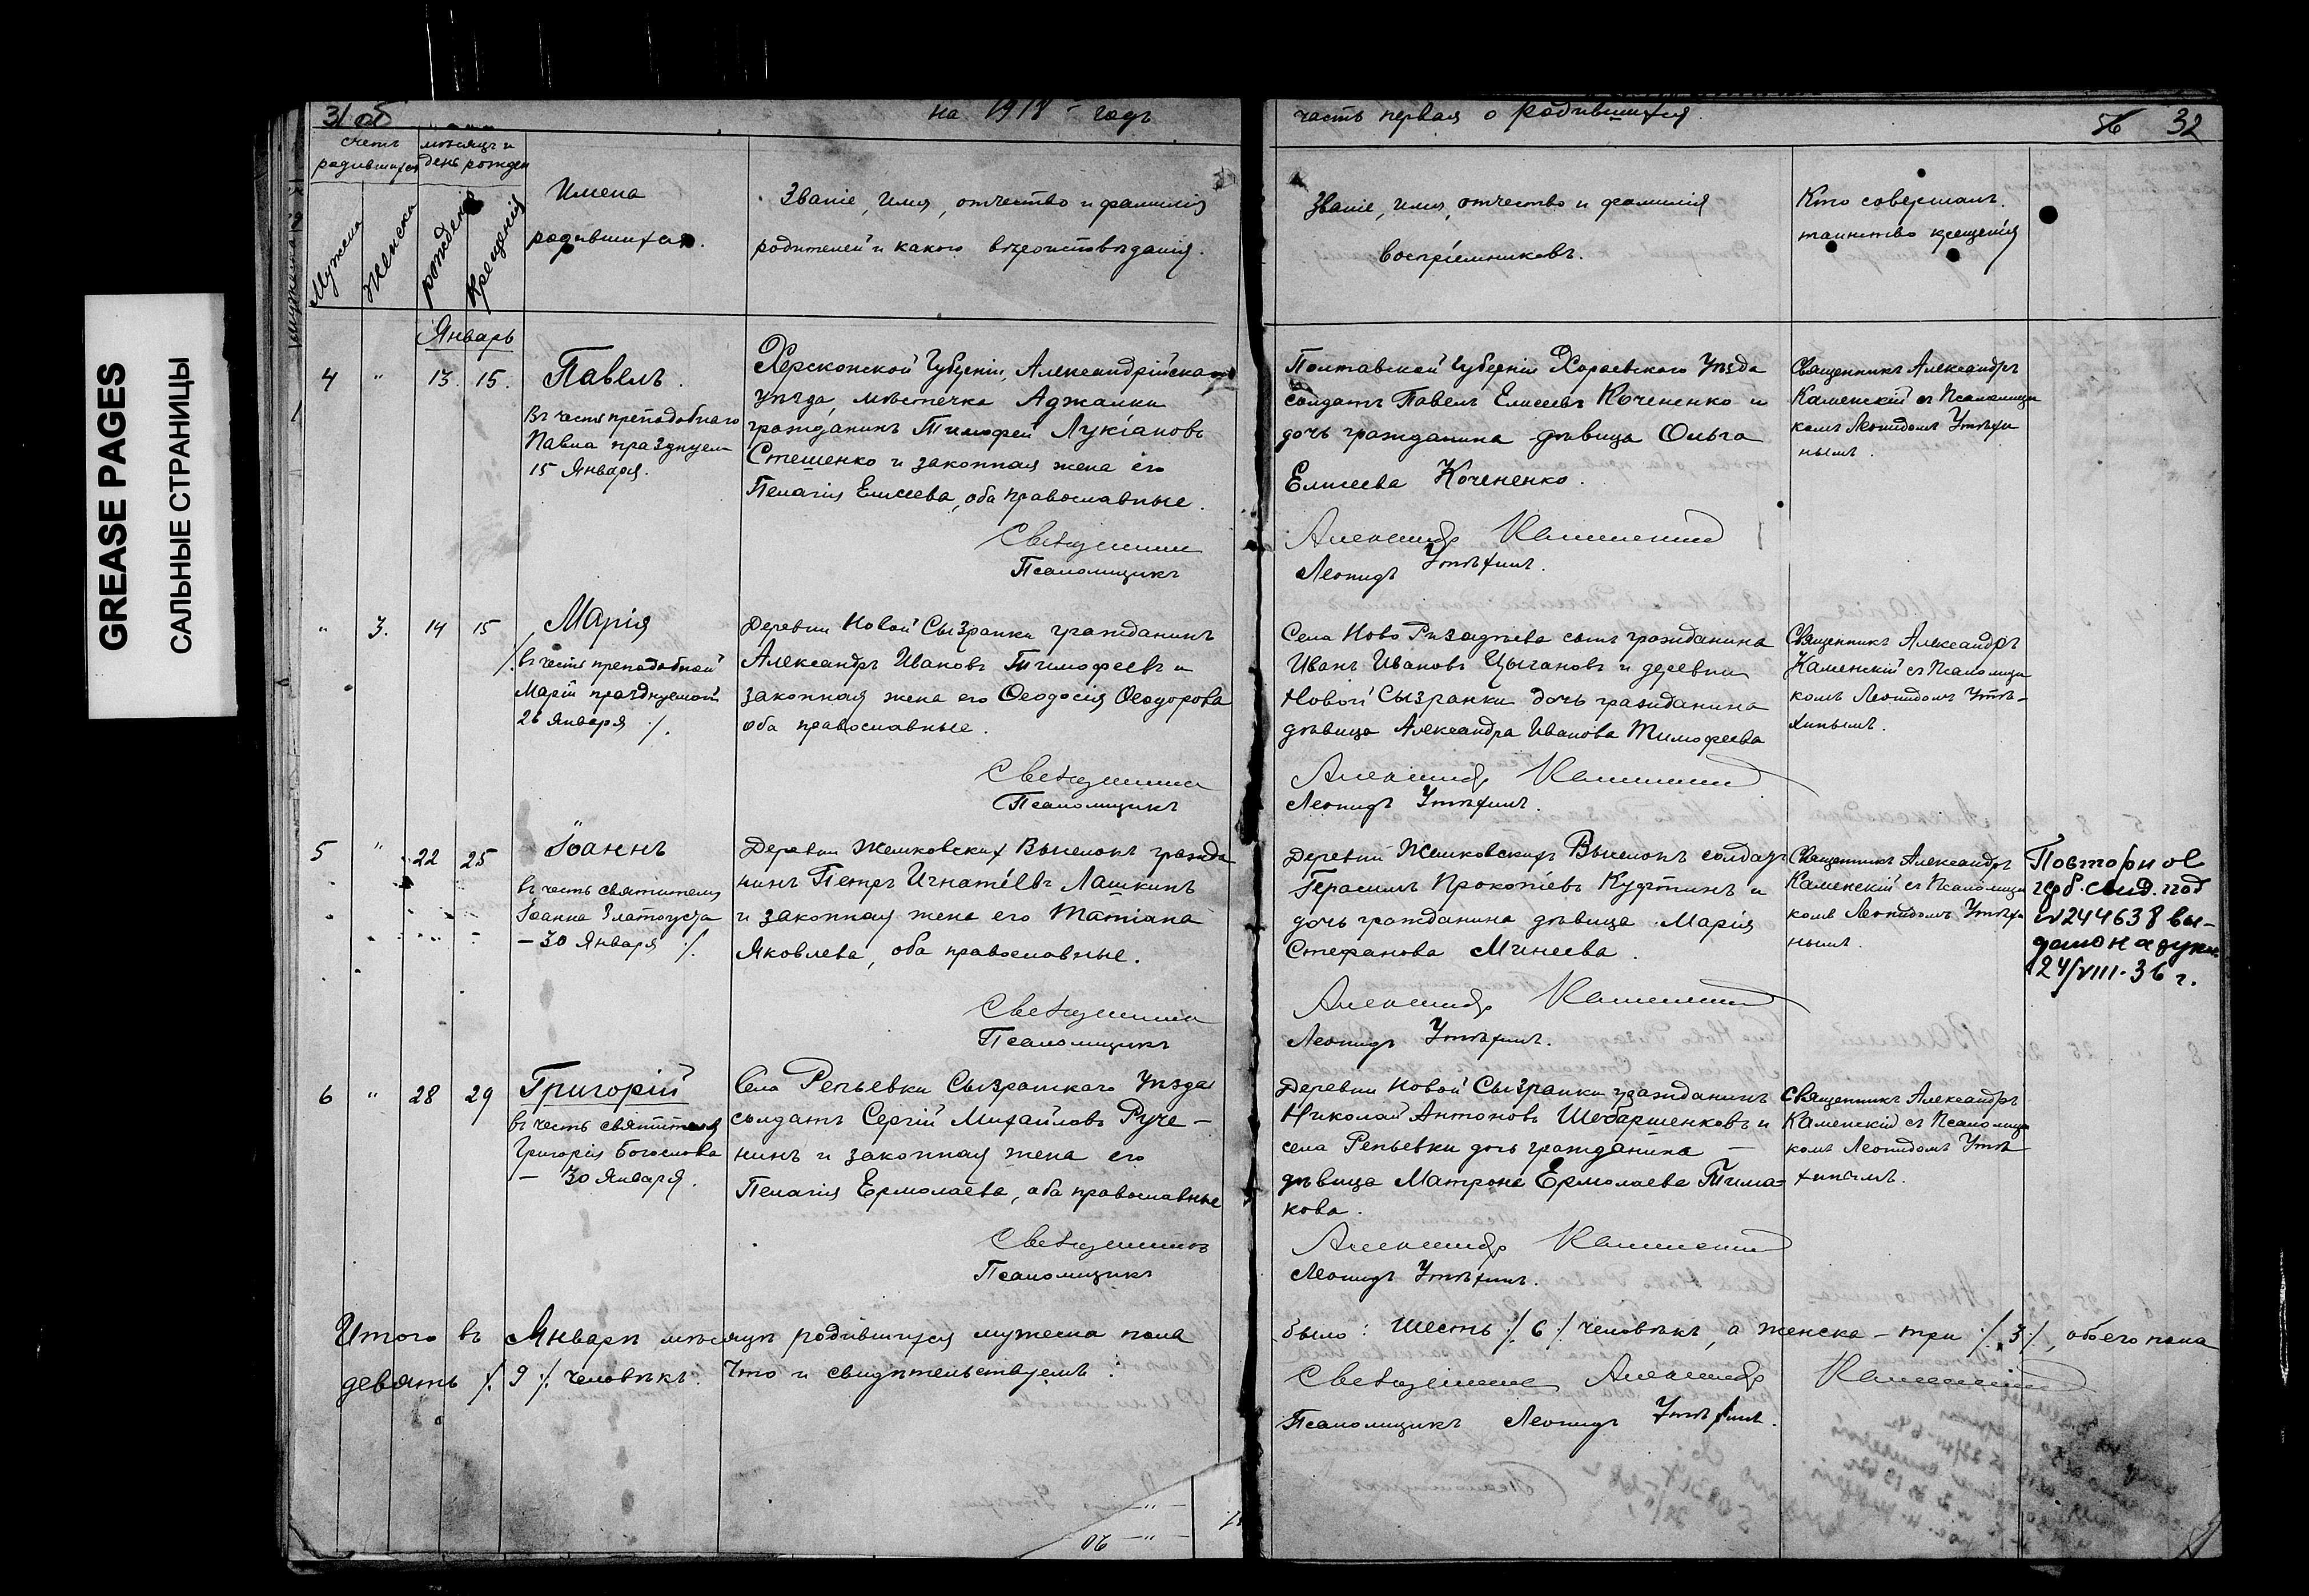 GREASE PAGES
САЛЬНЫЕ СТРАНИЦЫ
31 об
на 1918 годъ
часть первая о родившихся.
56 32
счетъ родившихся
мѣсяцъ и день рожден
Мужска
Женска
рожденія
Крещенія
Имена
родившихся.
Званіе, имя, отчество и фамилія
родителей и какого вѣроисповѣданія.
Званіе, имя, отчество и фамилія
воспріемниковъ.
Кто совершалъ
таинство крещенія
Январь
4 " 13. 15.
Павелъ.
Въ честь преподобнаго
Павла празднуем
15 Января.
Херсконской Губерніи, Александрійскаго
уѣзда, мѣстечка Аджамки
гражданинъ Тимофей Лукіановъ
Стешенко и законная жена его
Пелагія Елисеева, оба православные.
Полтавской Губерніи Хоревского Уѣзда
солдатъ Павелъ Елисеевъ Коченко и
дочь гражданина дѣвица Ольга
Елисеева Коченко.
Священникъ Александръ
Каменскій съ Псаломщи
комъ Леонидомъ Утѣхи
нымъ.
Священникъ
Псаломщикъ
Александръ Каменскій
Леонидъ Утѣхинъ.
" 3. 14 15
Марія
/. въ честь преподобной
Маріи празднуемой
26 Января /.
Деревни Новой Сызранки гражданинъ
Александръ Ивановъ Тимофеевъ и
законная жена его Ѳеодосія Ѳеодорова
оба православные.
Села Ново Ризадѣева сынъ гражданина
Иванъ Ивановъ Цыгановъ и деревни
Новой Сызранки дочь гражданина
дѣвица Александра Иванова Тимофеева
Священникъ Александръ
Каменскій съ Псаломщи
комъ Леонидомъ Утѣ-
хинымъ.
Священникъ
Псаломщикъ
Александръ Каменскій
Леонидъ Утѣхинъ.
5 " 22 25
Іоаннъ
въ честь святителя
Іоанна Златоуста
– 30 Января /.
Деревни Жемковскихъ Выселокъ гражда
нинъ Петръ Игнатіевъ Лашкинъ
и законная жена его Татіана
Яковлева, оба православные.
Деревни Жемковскихъ Выселокъ солдатъ
Герасимъ Прокопіевъ Кудѣтинъ и
дочь гражданина дѣвица Марія
Стефанова Минеева.
Священникъ Александръ
Каменскій съ Псаломщи
комъ Леонидомъ Утѣхи
нымъ.
Повторное
герб. свид. под
№ 244638 вы-
дано на руки
24/VIII-36 г.
Священникъ
Псаломщикъ
Александръ Каменскій
Леонидъ Утѣхинъ.
6 " 28 29
Григорій
въ честь святителя
Григорія Богослова
– 30 Января.
Села Репьевки Сызранскаго Уѣзда
солдатъ Сергій Михайловъ Руче-
нинъ и законная жена его
Пелагія Ермолаева, оба православные
Деревни Новой Сызранки гражданинъ
Николай Антоновъ Шебаршенковъ и
села Репьевки дочь гражданина –
дѣвица Матрона Ермолаева Тима-
кова.
Священникъ Александръ
Каменскій съ Псаломщи
комъ Леонидомъ Утѣ
хинымъ.
Священникъ
Псаломщикъ
Александръ Каменскій
Леонидъ Утѣхинъ.
Итого въ Январѣ мѣсяцѣ родившихся мужска пола было: Шесть /. 6 /. человѣкъ, а женска – три /. 3 /., обоего пола
девять /. 9 /. человѣкъ. Что и свидѣтельствуемъ:
Священникъ Александръ Каменскій
Псаломщикъ Леонидъ Утѣхинъ.